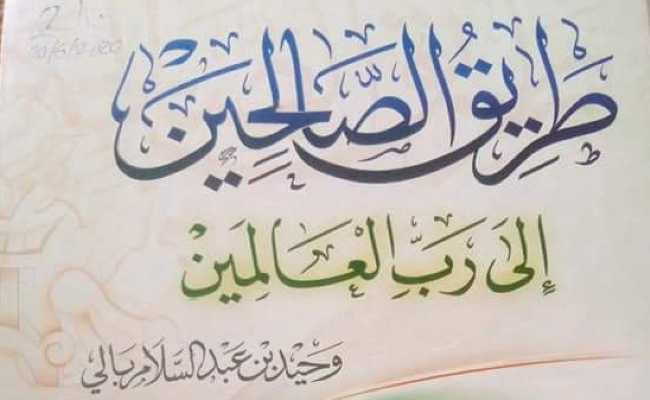 طَرِيقُ الصَّالِحِيْنَ
إِلَى رَبِّ الْعَالَمِيْنَ
وَحِيْد بْن عَبْد السَّلَام بَالِي